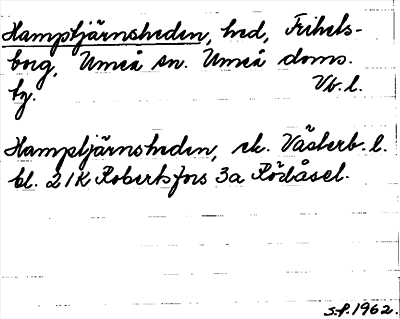 Hamptjärnsheden, hed, Frihels-
borg, Umeå sn. Umeå doms.
Vb. l.
tg.
Hamptjärnsheden, ek. Västerb. l.
bl. 21K Robertsfors 3a Rödåsel.
s.f. 1962.